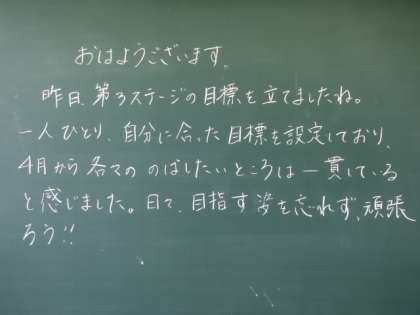 おはようございます。
昨日、第3ステージの目標を立てましたね。
一人ひとり、自分に合った目標を設定しており、
4月から各々ののばしたいところは一貫している
と感じました。日々、目指す姿を忘れず、頑張
ろう!!